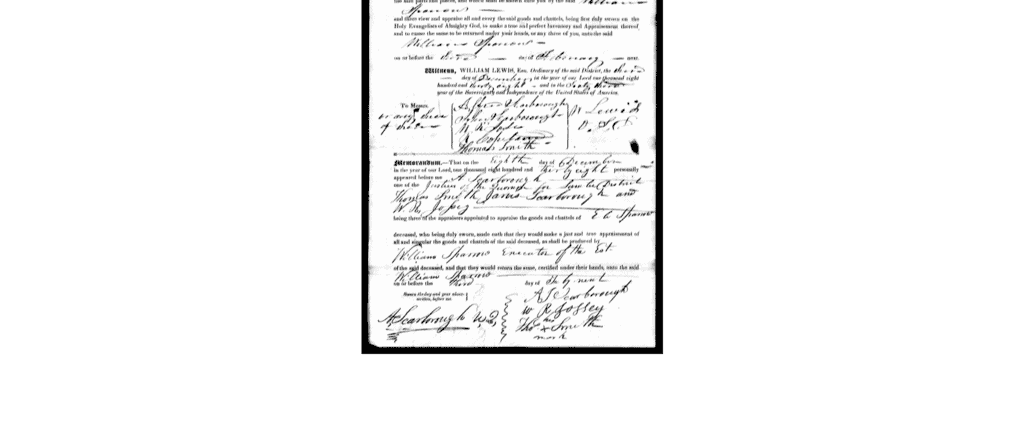 Sparrow
and there view and appraise all and every the said goods and chattels, being first duly sworn on the
Holy Evangelists of Almighty God, to make a true and perfect Inventory and Appraisement thereof,
and to cause the same to be returned under your hands, or any three of you, unto the said
William Sparrow
on or before the third day of February next.
Witness, WILLIAM LEWIS, Esq. Ordinary of the said District, the third
day of December in the year of our Lord one thousand eight
hundred and thirty eight and in the Sixty third
year of the Sovereignty and Independence of the United States of America.
To Messrs.
or any three
of them
Alfred Scarborough
Scarborough
W. R.
Thomas Smith
W Lewis
Memorandum,—That on the Eighth day of December
in the year of our Lord, one thousand eight hundred and thirty eight personally
appeared before me A Scarborough
one of the Justices of the Quorum for Sumter District
Thomas Smith James Scarborough and
W. R. Jossey
being three of the appraisers appointed to appraise the goods and chattels of E C Sparrow
deceased, who being duly sworn, made oath that they would make a just and true appraisement of
all and singular the goods and chattels of the said deceased, as shall be produced by
William Sparrow Executor of the Est.
of the said deceased, and that they would return the same, certified under their hands, unto the said
William Sparrow
on or before the third day of Feby next
Sworn the day and year above
written, before me.
Scarborough
Scarborough
W R Jossey
his
Thos x Smith
mark